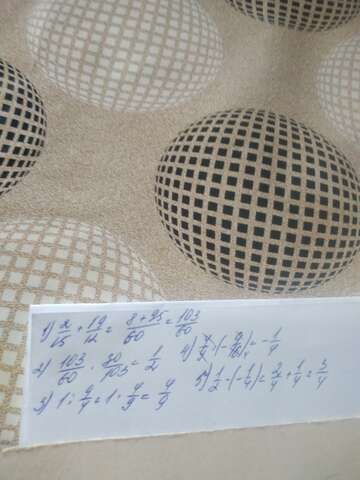 1) 2/15 + 19/12 = (8+95)/60 = 103/60
2) 103/60 · 30/103 = 1/2
3) 1 : 9/4 = 1 · 4/9 = 4/9
4) 4/9 · (- 9/16) = - 1/4
5) 1/2 - (- 1/4) = 2/4 + 1/4 = 3/4